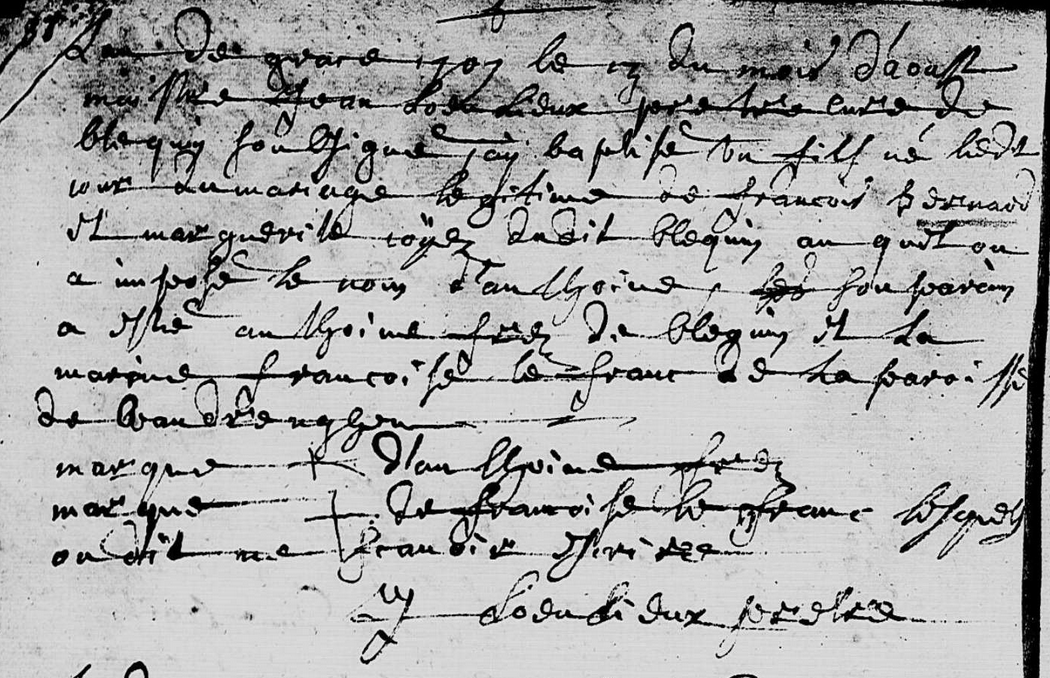 L'an de grace 1707 le 19 du mois d'aoust
maistre Jean Loeulieux prestre curé de
blequin soussigné jaij baptisé un fils né ledt
jour du mariage legitime de francois Bernard
et marguerite coÿez dudit blequin au quel on
a imposé le nom d'anthoine, son parain
a esté anthoine frez de blequin et La
marine francoise le franc de La paroisse
de vaudrenghen
marque + d'anthoine frez
marque + de francoise le franc lesquels
on dit ne scauoir escrire
J Loeulieux prestre